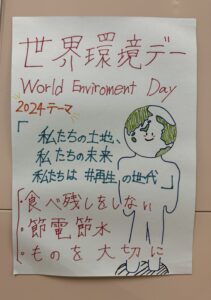 世界環境デー
World Enviroment Day
2024テーマ
「私たちの土地、
私たちの未来
私たちは#再生の世代」
・食べ残しをしない
・節電節水
・ものを大切に